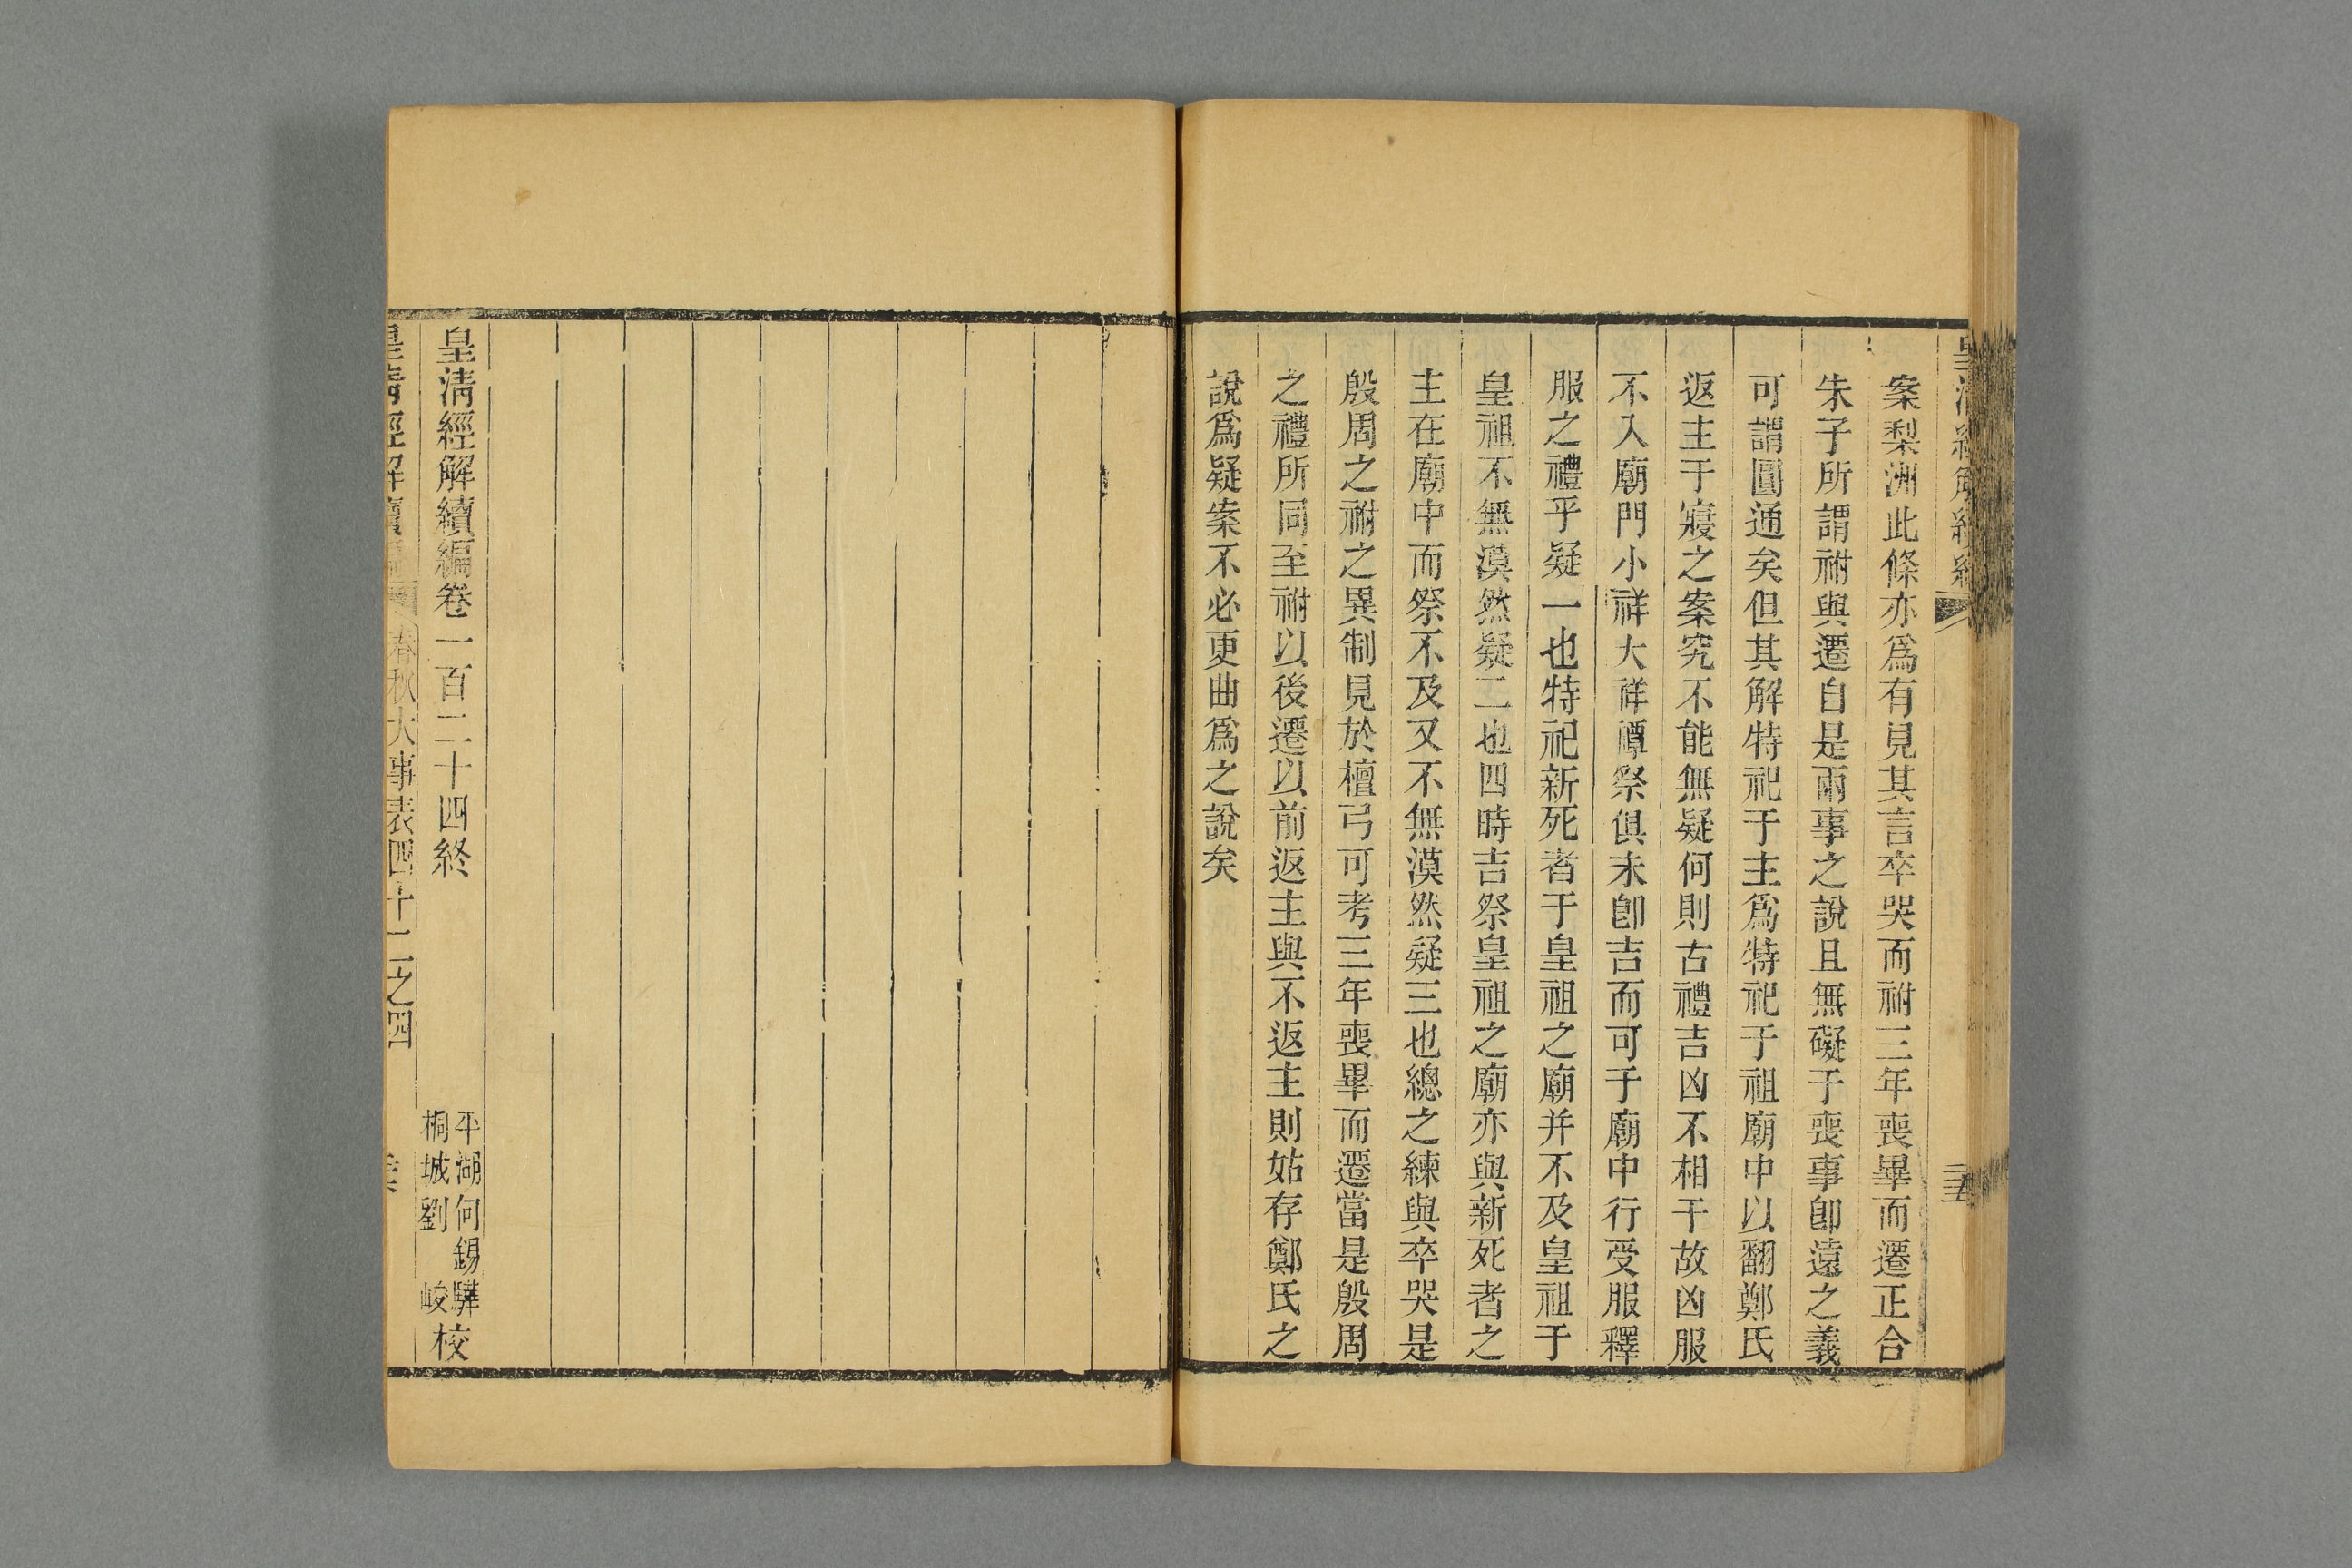 案梨洲此條亦爲有見其言卒哭而祔三年喪畢而遷正合
朱子所謂祔與遷自是兩事之說且無礙于喪事卽遠之義
可謂圓通矣但其解特祀于主爲特祀于祖廟中以翻鄭氏
返主于寢之案究不能無疑何則古禮吉凶不相干故凶服
不入廟門小祥大祥禫祭俱未卽吉而可于廟中行受服釋
服之禮乎疑一也特祀新死者于皇祖之廟并不及皇祖于
皇祖不無漠然疑二也四時吉祭皇祖之廟亦與新死者之
主在廟中而祭不及又不無漠然疑三也總之練與卒哭是
殷周之祔之異制見於檀弓可考三年喪畢而遷當是殷周
之禮所同至祔以後遷以前返主與不返主則姑存鄭氏之
說爲疑案不必更曲爲之說矣
皇淸經解續編卷一百二十四終
平湖何錫驊
桐城劉峻校
皇淸經解續 春秋大事表四十二之四